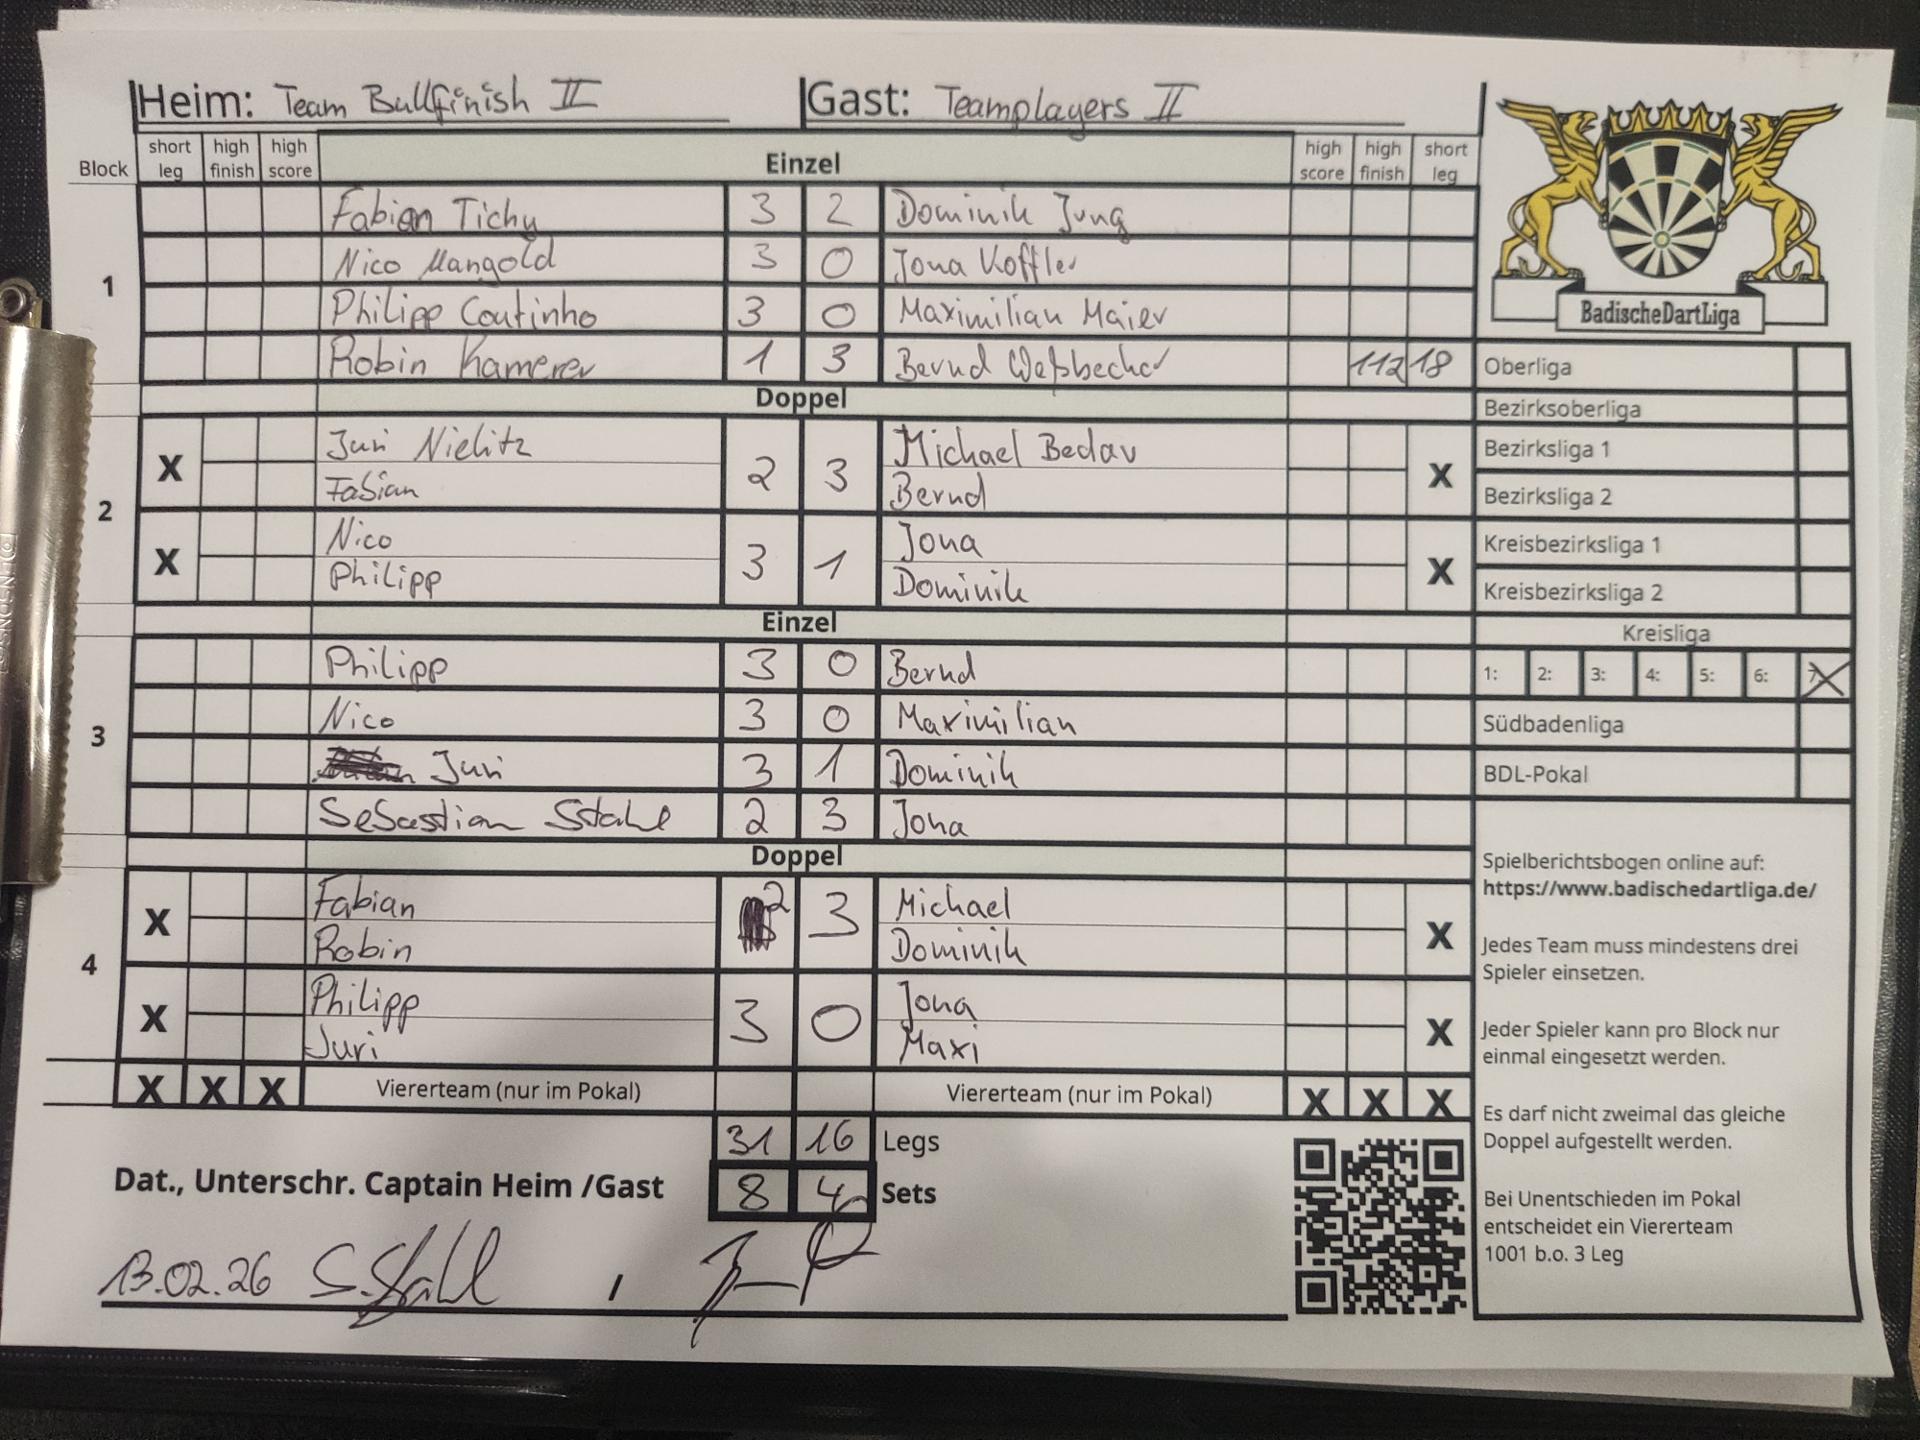 Heim: Team Bullfinish II Gast: Teamplayers II
Block short leg high finish high score Einzel high score high finish short leg
1
Fabian Tichy 3 2 Dominik Jung
Nico Mangold 3 0 Jona Koffler
Philipp Coutinho 3 0 Maximilian Maier
Robin Kamerer 1 3 Bernd Weßbecher 112 18
Doppel
2
X Juri Nielitz 2 3 Michael Bedav X
Fabian Bernd
X Nico 3 1 Jona X
Philipp Dominik
Einzel
3
Philipp 3 0 Bernd
Nico 3 0 Maximilian
Juri 3 1 Dominik
Sebastian Stahl 2 3 Jona
Doppel
4
X Fabian 2 3 Michael X
Robin Dominik
X Philipp 3 0 Jona X
Juri Maxi
X X X Viererteam (nur im Pokal) Viererteam (nur im Pokal) X X X
31 16 Legs
8 4 Sets
Dat., Unterschr. Captain Heim /Gast
13.02.26 S. Stahl /
BadischeDartLiga
Oberliga
Bezirksoberliga
Bezirksliga 1
Bezirksliga 2
Kreisbezirksliga 1
Kreisbezirksliga 2
Kreisliga
1: 2: 3: 4: 5: 6: 7 X
Südbadenliga
BDL-Pokal
Spielberichtsbogen online auf:
https://www.badischedartliga.de/
Jedes Team muss mindestens drei
Spieler einsetzen.
Jeder Spieler kann pro Block nur
einmal eingesetzt werden.
Es darf nicht zweimal das gleiche
Doppel aufgestellt werden.
Bei Unentschieden im Pokal
entscheidet ein Viererteam
1001 b.o. 3 Leg